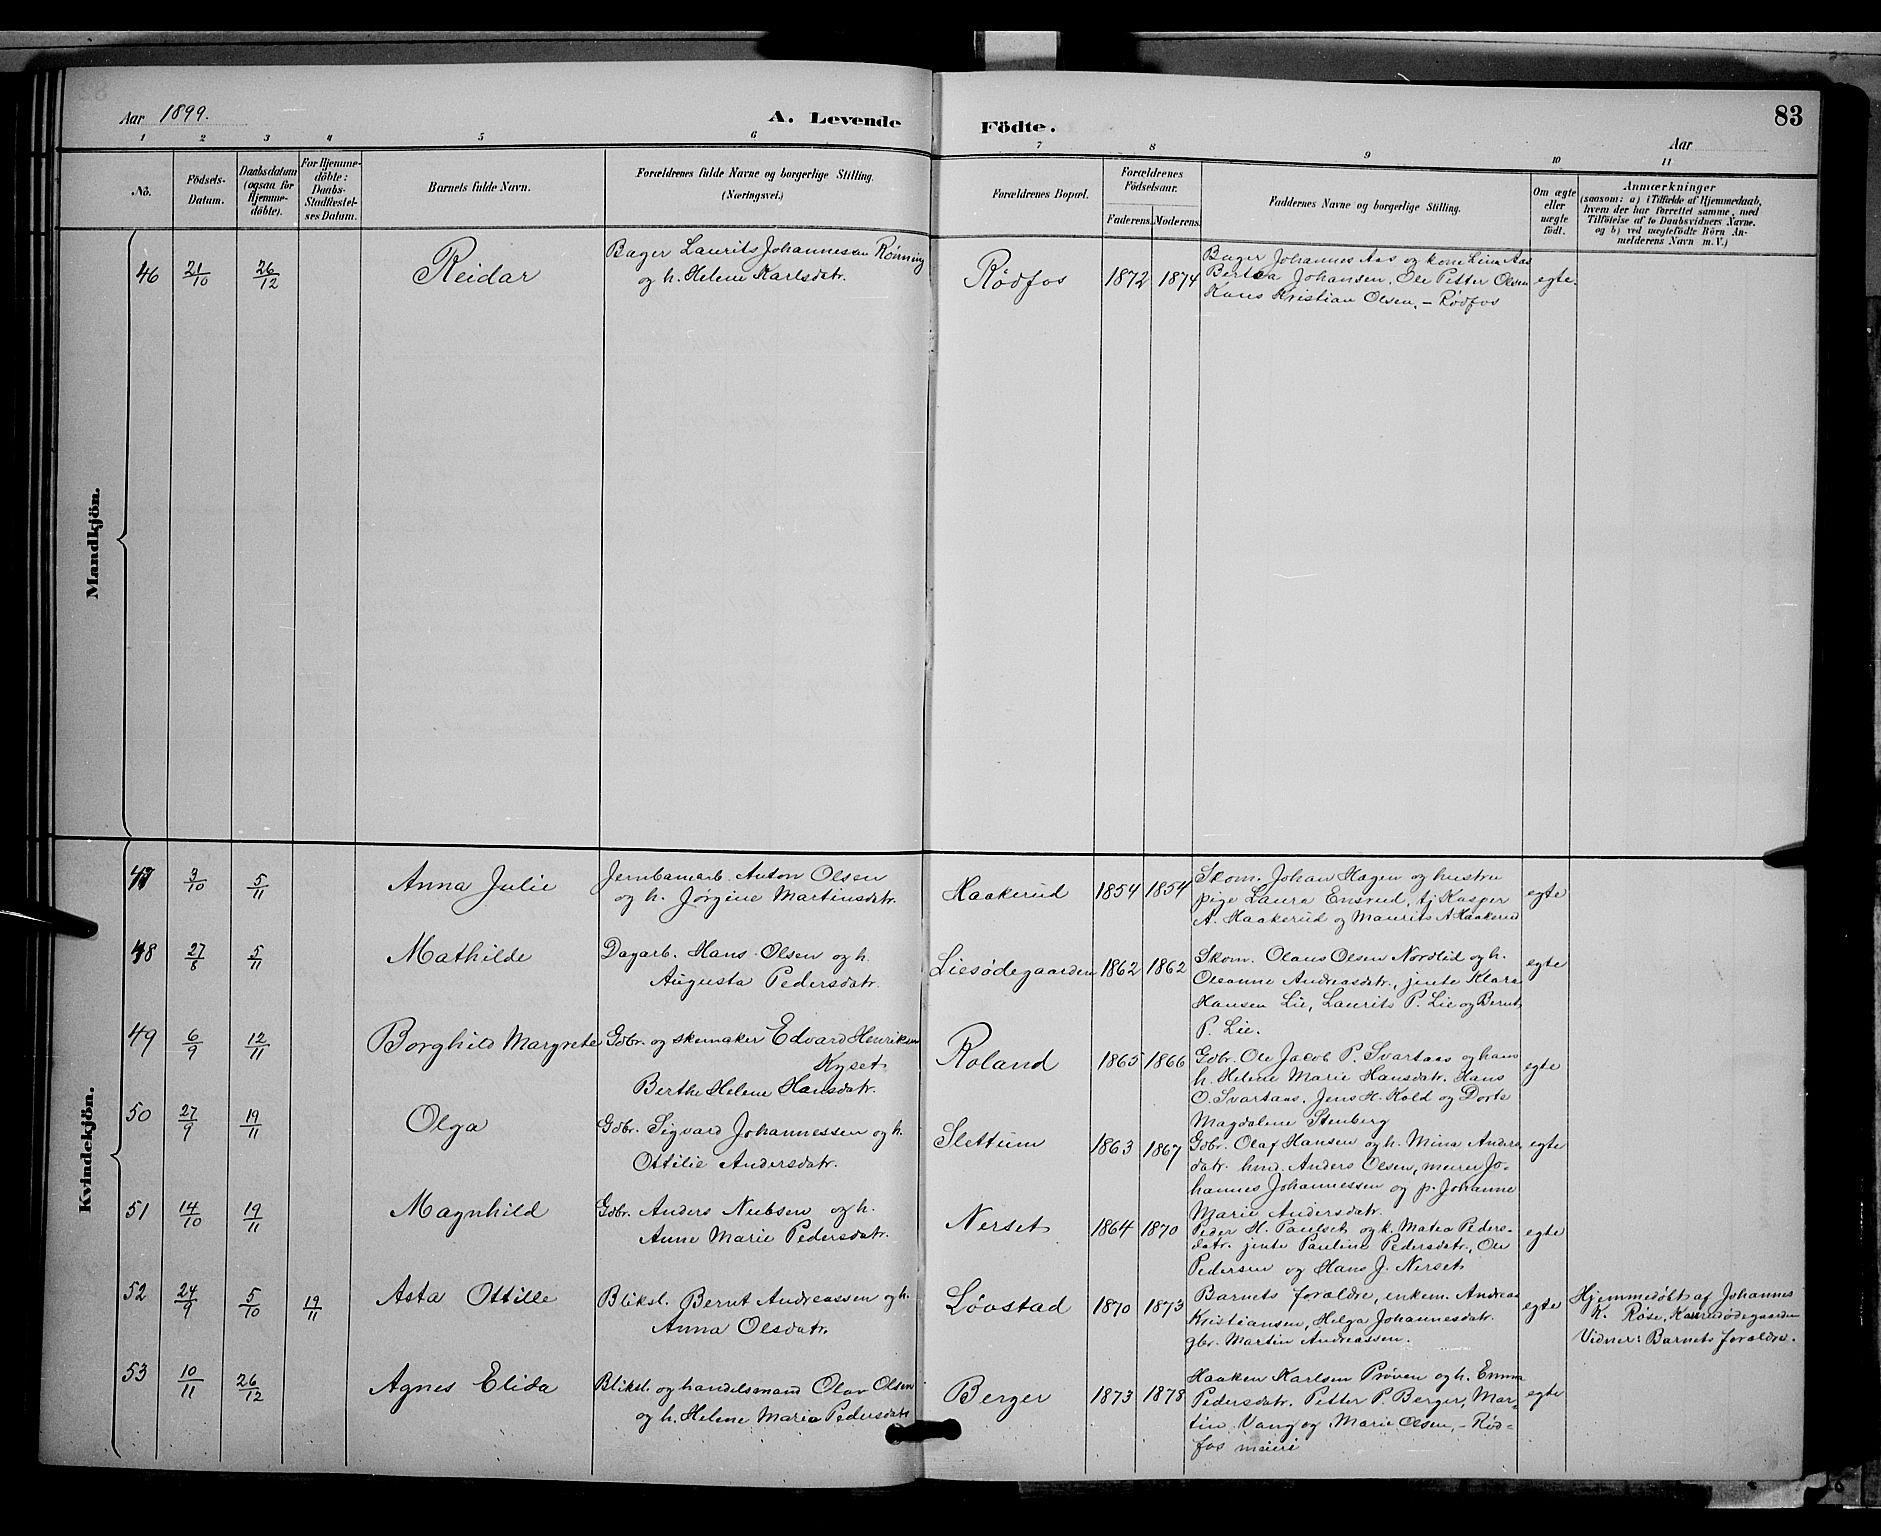 Aar 1899.
A. Levende
Födte.
83
Aar
1 2 3 4 5 6 7 8 9 10 11
No.
Födsels-
Datum.
Daabsdatum
(ogsaa for
Hjemme-
döbte).
For Hjemme-
döbte:
Daabs-
Stadfæstel-
ses Datum.
Barnets fulde Navn.
Forældrenes fulde Navne og borgerlige Stilling.
(Næringsvei.)
Forældrenes Bopæl.
Forældrenes
Födselsaar.
Faderens. Moderens.
Faddernes Navne og borgerlige Stilling.
Om ægte
eller
uægte
födt.
Anmærkninger
(saasom: a) i Tilfælde af Hjemmedaab,
hvem der har forrettet samme, med
Tilföielse af to Daabsvidners Navne.
og b) ved uægtefödte Börn An-
melderens Navn m.V.)
Mandkjön.
46 21/10 26/12 Reidar
Bager Laurits Johannesen Rønning
og h. Helene Karlsdatr.
Rødfos 1872 1874
Bager Johannes Aas og kone Lina Aas
Bertea Johansen, Ole Petter Olsen
Hans Kristian Olsen. – Rødfos
egte.
Kvindekjön.
47 3/10 5/11 Anna Julie
Jernbanarb. Anton Olsen
og h. Jørgine Martinsdatr.
Haakerud 1854 1854
Skom. Johan Hagen og hustru
pige Laura Ensrud, tj Kasper
A. Haakerud og Maurits A Haakerud
egte
48 27/8 5/11 Mathilde
Dagarb. Hans Olsen og h.
Augusta Pedersdatr.
Liesødegaarden 1862 1862
Skom. Olaus Olsen Nordlid og h.
Oleanne Andreasdatr., jente Klara
Hansen Lie, Laurits P. Lie og Bernt
P. Lie.
egte
49 6/9 12/11 Borghild Margrete
Gdbr. og skomaker Edvard Henriksen
Kyset
Berthe Helene Hansdatr.
Roland 1865 1866
Gdbr. Ole Jacob P. Svartaas og hans
h. Helene Marie Hansdatr. Hans
O. Svartaas, Jens H. Kold og Dorte
Magdalene Stenberg
egte
50 27/9 19/11 Olga
Gdbr. Sigvard Johannessen og h.
Ottilie Andersdatr.
Slettum 1863 1867
Gdbr. Olaf Hansen og h. Mina Anders
datr. hmd. Anders Olsen, meier Jo-
hannes Johannessen og p. Johanne
Marie Andersdatr.
egte
51 14/10 19/11 Magnhild
Gdbr. Anders Nielsen og h.
Anne Marie Pedersdatr.
Nerset 1864 1870
Peder H. Paulset og k. Matea Peders-
datr. jente Pauline Pedersdatr., Ole
Pedersen og Hans J. Nerset
egte
52 24/9 5/10 19/11 Asta Ottilie
Bliksl. Bernt Andreassen og h.
Anna Olsdatr.
Løvstad 1870 1873
Barnets forældre, enkem. Andreas
Kristiansen, Helga Johannesdatr.
gbr. Martin Andreassen.
egte
Hjemmedøbt af Johannes
K. Røise,
Vidner: Barnets forældre.
53 10/11 26/12 Agnes Elida
Bliksl. og handelsmand Olav Olsen
og h. Helene Maria Pedersdatr
Berger 1873 1878
Haaken Karlsen Prøven og h. Emma
Pedersdatr. Petter P. Berger, Mar-
tin Vang og Marie Olsen, – Rød-
fos meieri
egte